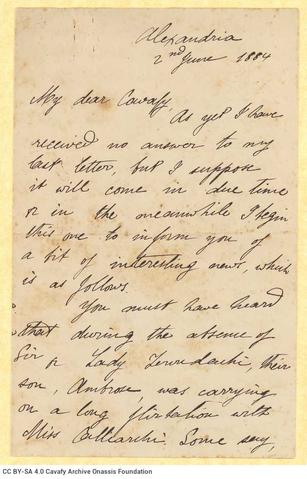 Alexandria
2nd June 1884
My dear Cavafy,
As yet I have
received no answer to my
last letter, but I suppose
it will come in due time
or in the meanwhile I begin
this one to inform you of
a bit of interesting news, which
is as follows.
You must have heard
that during the absence of
Sir & Lady their
son, Ambrose, was carrying
on a long flirtation with
Miss Some say,
CC BY-SA 4.0 Cavafy Archive Onassis Foundation